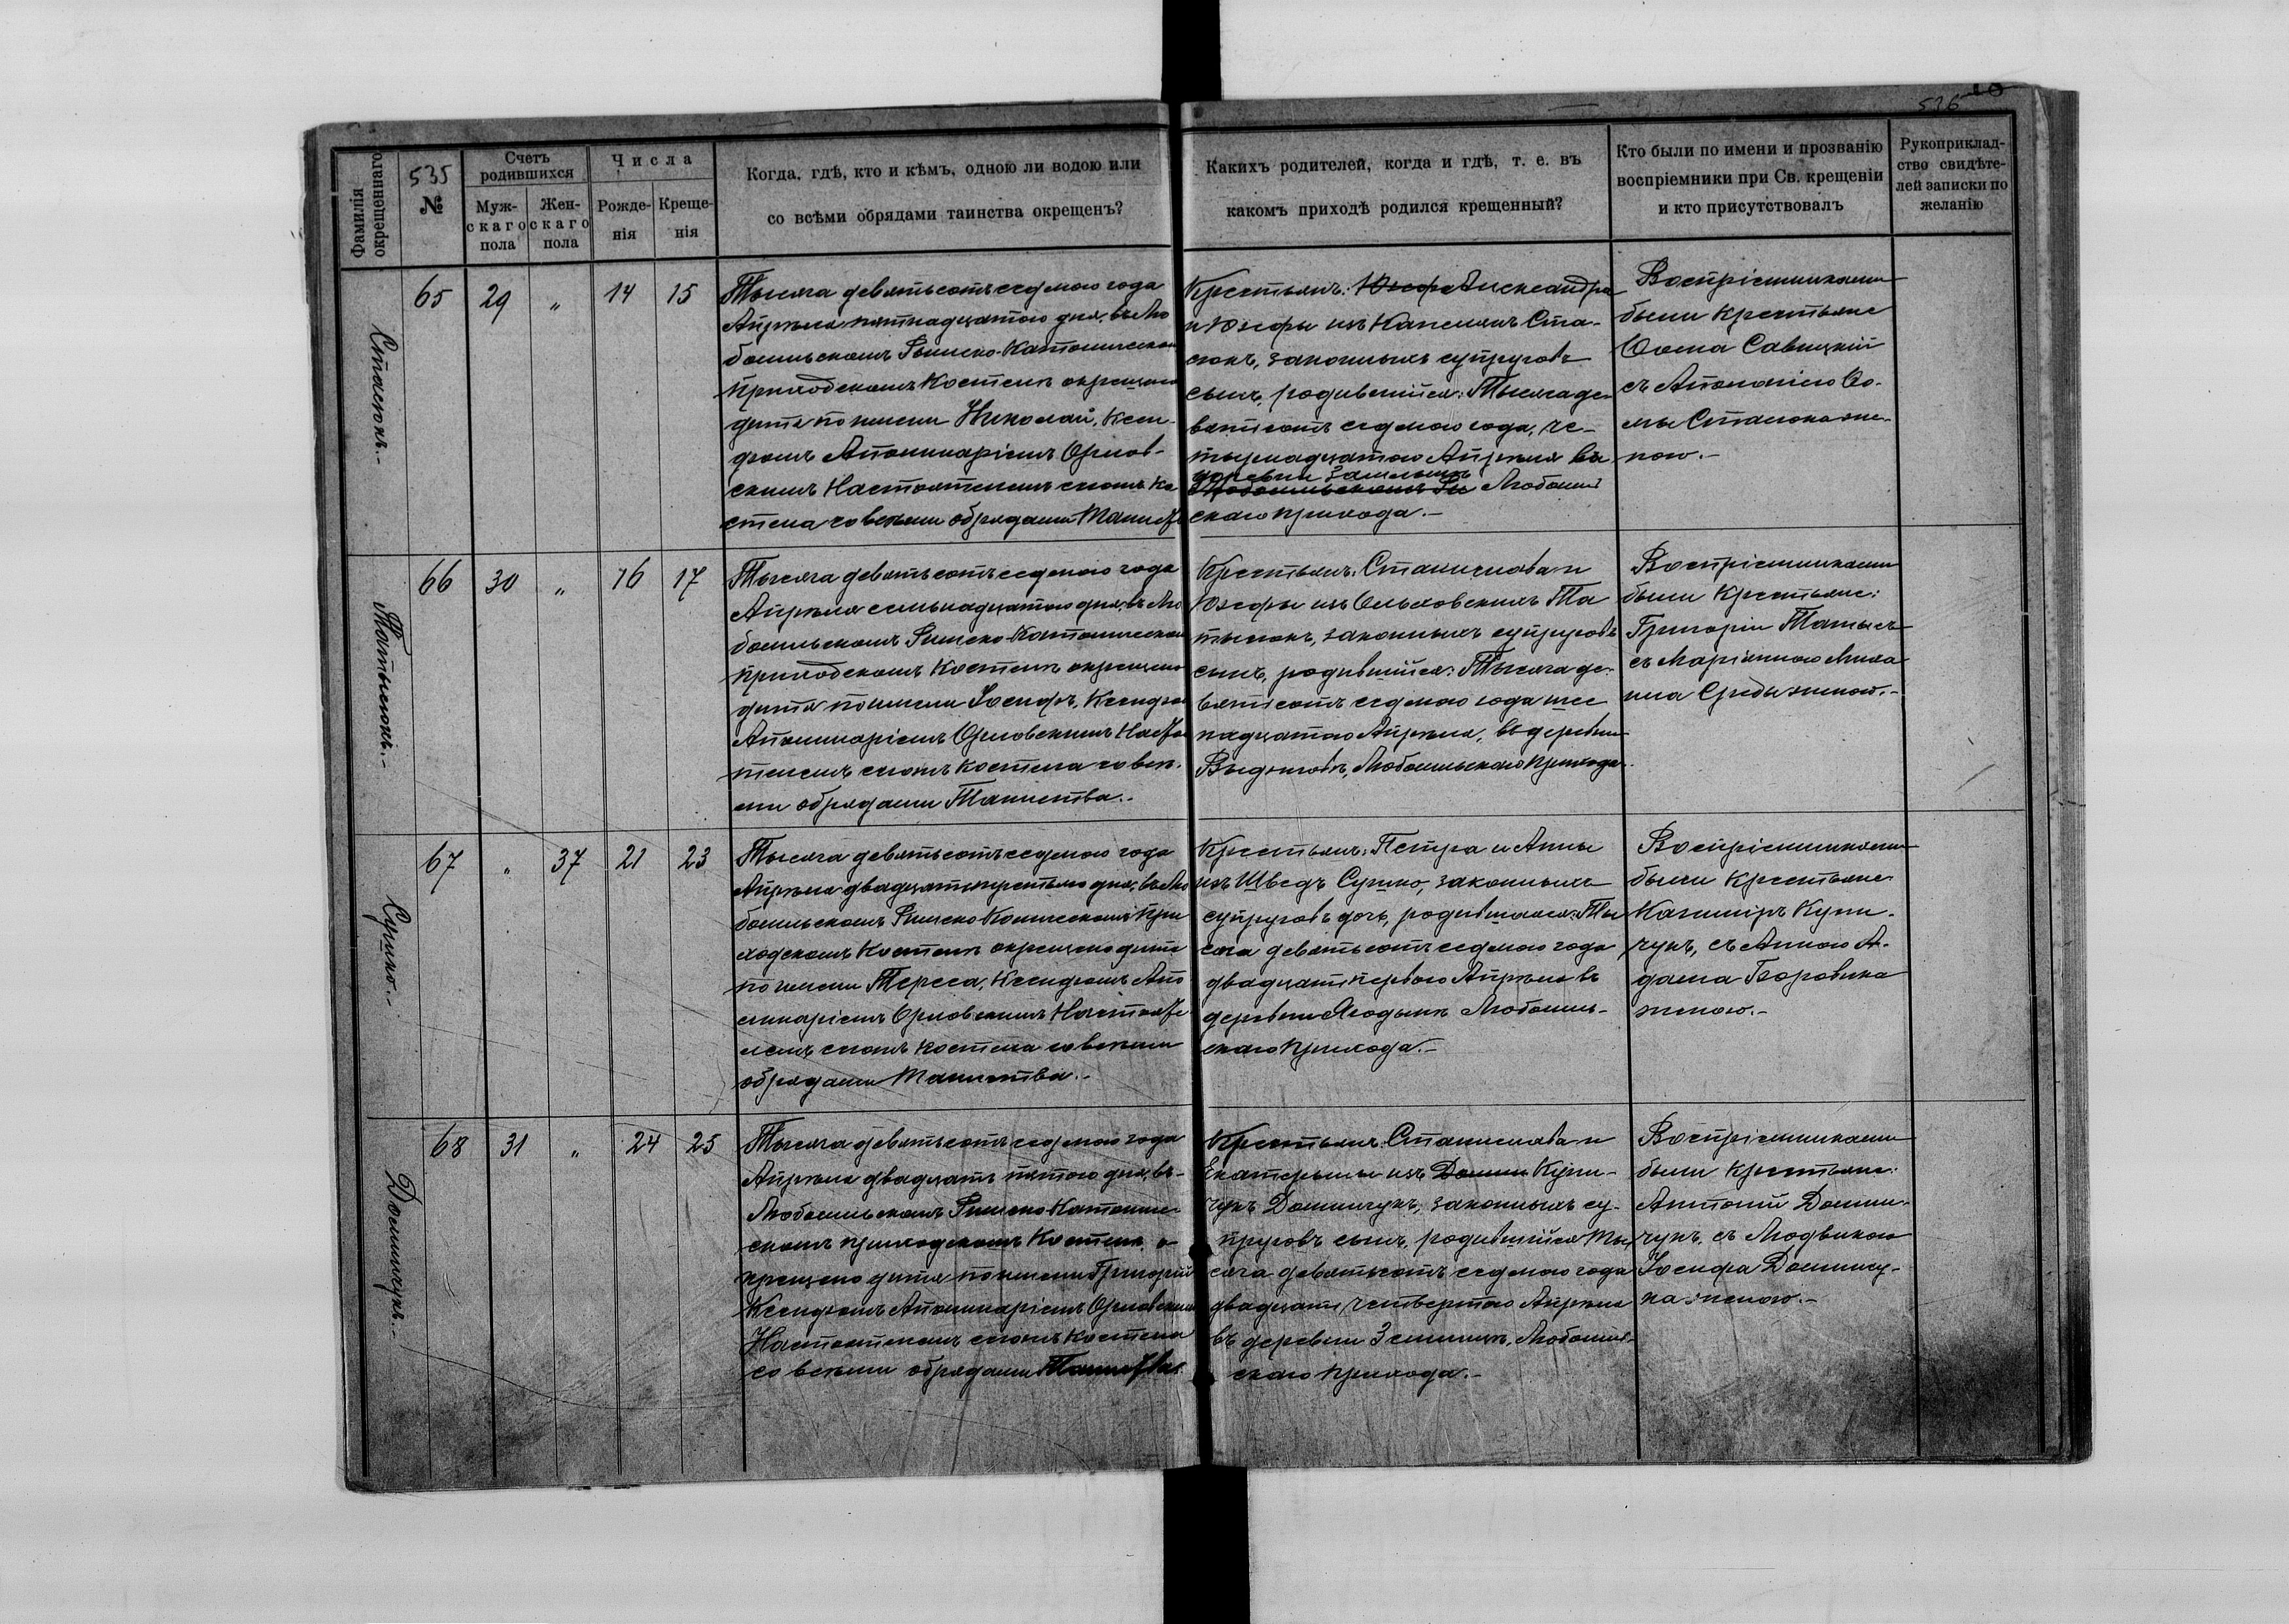 535
526
Фамилія окрещеннаго
№
Счетъ родившихся
Мужскаго пола
Женскаго пола
Числа
Рожденія
Крещенія
Когда, гдѣ, кто и кѣмъ, одною ли водою или
со всѣми обрядами таинства окрещенъ?
Какихъ родителей, когда и гдѣ, т. е. въ
какомъ приходѣ родился крещенный?
Кто были по имени и прозванію
воспріемники при Св. крещеніи
и кто присутствовалъ
Рукоприклад-
ство свидѣте-
лей записки по
желанію
Стасюкъ.-
65 29 " 14 15
Тысяча девятьсотъ седмого года
Апрѣля пятнадцатого дня, въ Лю
бомльскомъ Римско-Католическом
приходскомъ Костелѣ окрещено
дитя по имени Николай, Ксен-
дзомъ Аполинаріемъ Орлов-
скимъ Настоятелемъ сиомъ Ко
стела со всѣми обрядами Таин
Крестьянъ: Юзефа Александра
и Юзефы изъ Ста-
сюкъ, законныхъ супруговъ
сынъ, родившійся: Тысяча де-
вятьсотъ седмого года, че-
тырнадцатого Апрѣля въ
деревни
Любомльскомъ Любомль
скаго прихода.-
Воспріемниками
были Крестьяне
Фома Савицкій
съ Аполоніею Фо-
мы Стасюка же-
ною.-
Татысюкъ.-
66 30 " 16 17
Тысяча девятьсотъ седмого года
Апрѣля семьнадцатого дня, въ Лю
бомльскомъ Римско-Католическом
приходскомъ Костелѣ окрещено
дитя по имени Іосифъ, Ксендзом
Аполинаріемъ Орловскимъ Насто
телемъ сиомъ Костела со всѣ-
ми обрядами Таинства.-
Крестьянъ: Станислава и
Юзефы изъ Ольховскихъ Та
тысюкъ, законныхъ супруговъ
сынъ, родившійся: Тысяча де-
вятьсотъ седмого года шес
надцатого Апрѣля, въ деревни
Любомльскаго прихода.
Воспріемниками
были Крестьяне:
Григорій Татысь
съ Маріянною Миха
ила женою.-
Сушко.-
67 " 37 21 23
Тысяча девятьсотъ седмого года
Апрѣля двадцать третьяго дня, въ Лю
бомльскомъ Римско Коическомъ при
ходскомъ Костелѣ окрещено дитя
по имени Тереса, Ксендзомъ Апо
линаріемъ Орловскимъ Настояте
лемъ сиомъ Костела со всѣми
обрядами Таинства.-
Крестьянъ: Петра и Анны
изъ Шведъ Сушко, законныхъ
супруговъ дочь, родившаяся: Ты
сяча девятьсотъ седмого года
двадцать первого Апрѣля въ
деревни Ягодынѣ Любомль-
скаго прихода.-
Воспріемниками
были Крестьяне
Казиміръ Купи-
чукъ, съ Анною А-
дама Боровика
женою.-
Доминчукъ.-
68 31 " 24 25
Тысяча девятьсотъ седмого года
Апрѣля двадцать пятого дня, въ
Любомльскомъ Римско Католиче
скомъ приходскомъ Костелѣ о-
крещено дитя по имени Григорій
Ксендзомъ Аполинаріемъ Орловским
Настоятелемъ сиомъ Костела
со всѣми обрядами Таинства.
Крестьянъ: Станислава и
Екатерыны изъ Домин Купи-
чукъ Доминчукъ, законныхъ су-
пруговъ сынъ, родившійся Ты
сяча девятьсотъ седмого года
двадцать четвертого Апрѣля
въ деревни Землицѣ, Любомль-
скаго прихода.-
Воспріемниками
были Крестьяне:
Антоній Домин-
чукъ, съ Людвикою
Іосифа Доминчу-
ка женою.-